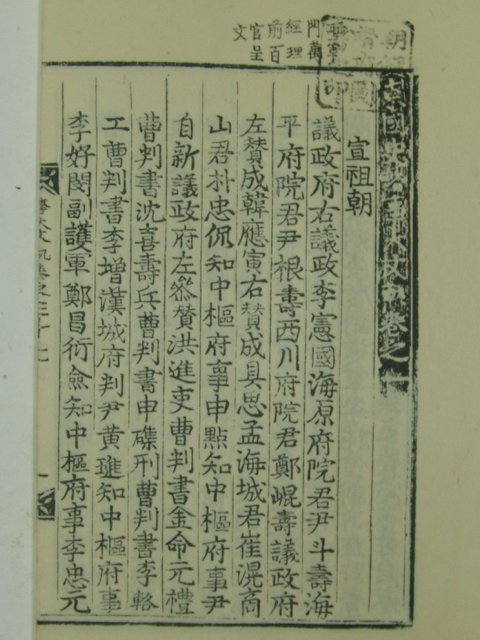 宣祖朝
議政府右議政李憲國海原府院君尹斗壽海
平府院君尹根壽西川府院君鄭崐壽議政府
左贊成韓應寅右贊成具思孟海城君崔滉商
山君朴忠侃知中樞府事申點知中樞府事尹
自新議政府左叅贊洪進吏曹判書金命元禮
曹判書沈喜壽兵曹判書申磼刑曹判書李輅
工曹判書李增漢城府判尹黃璡知中樞府事
李好閔副護軍鄭昌衍僉知中樞府事李忠元
門萬
經理
前百
官呈
文